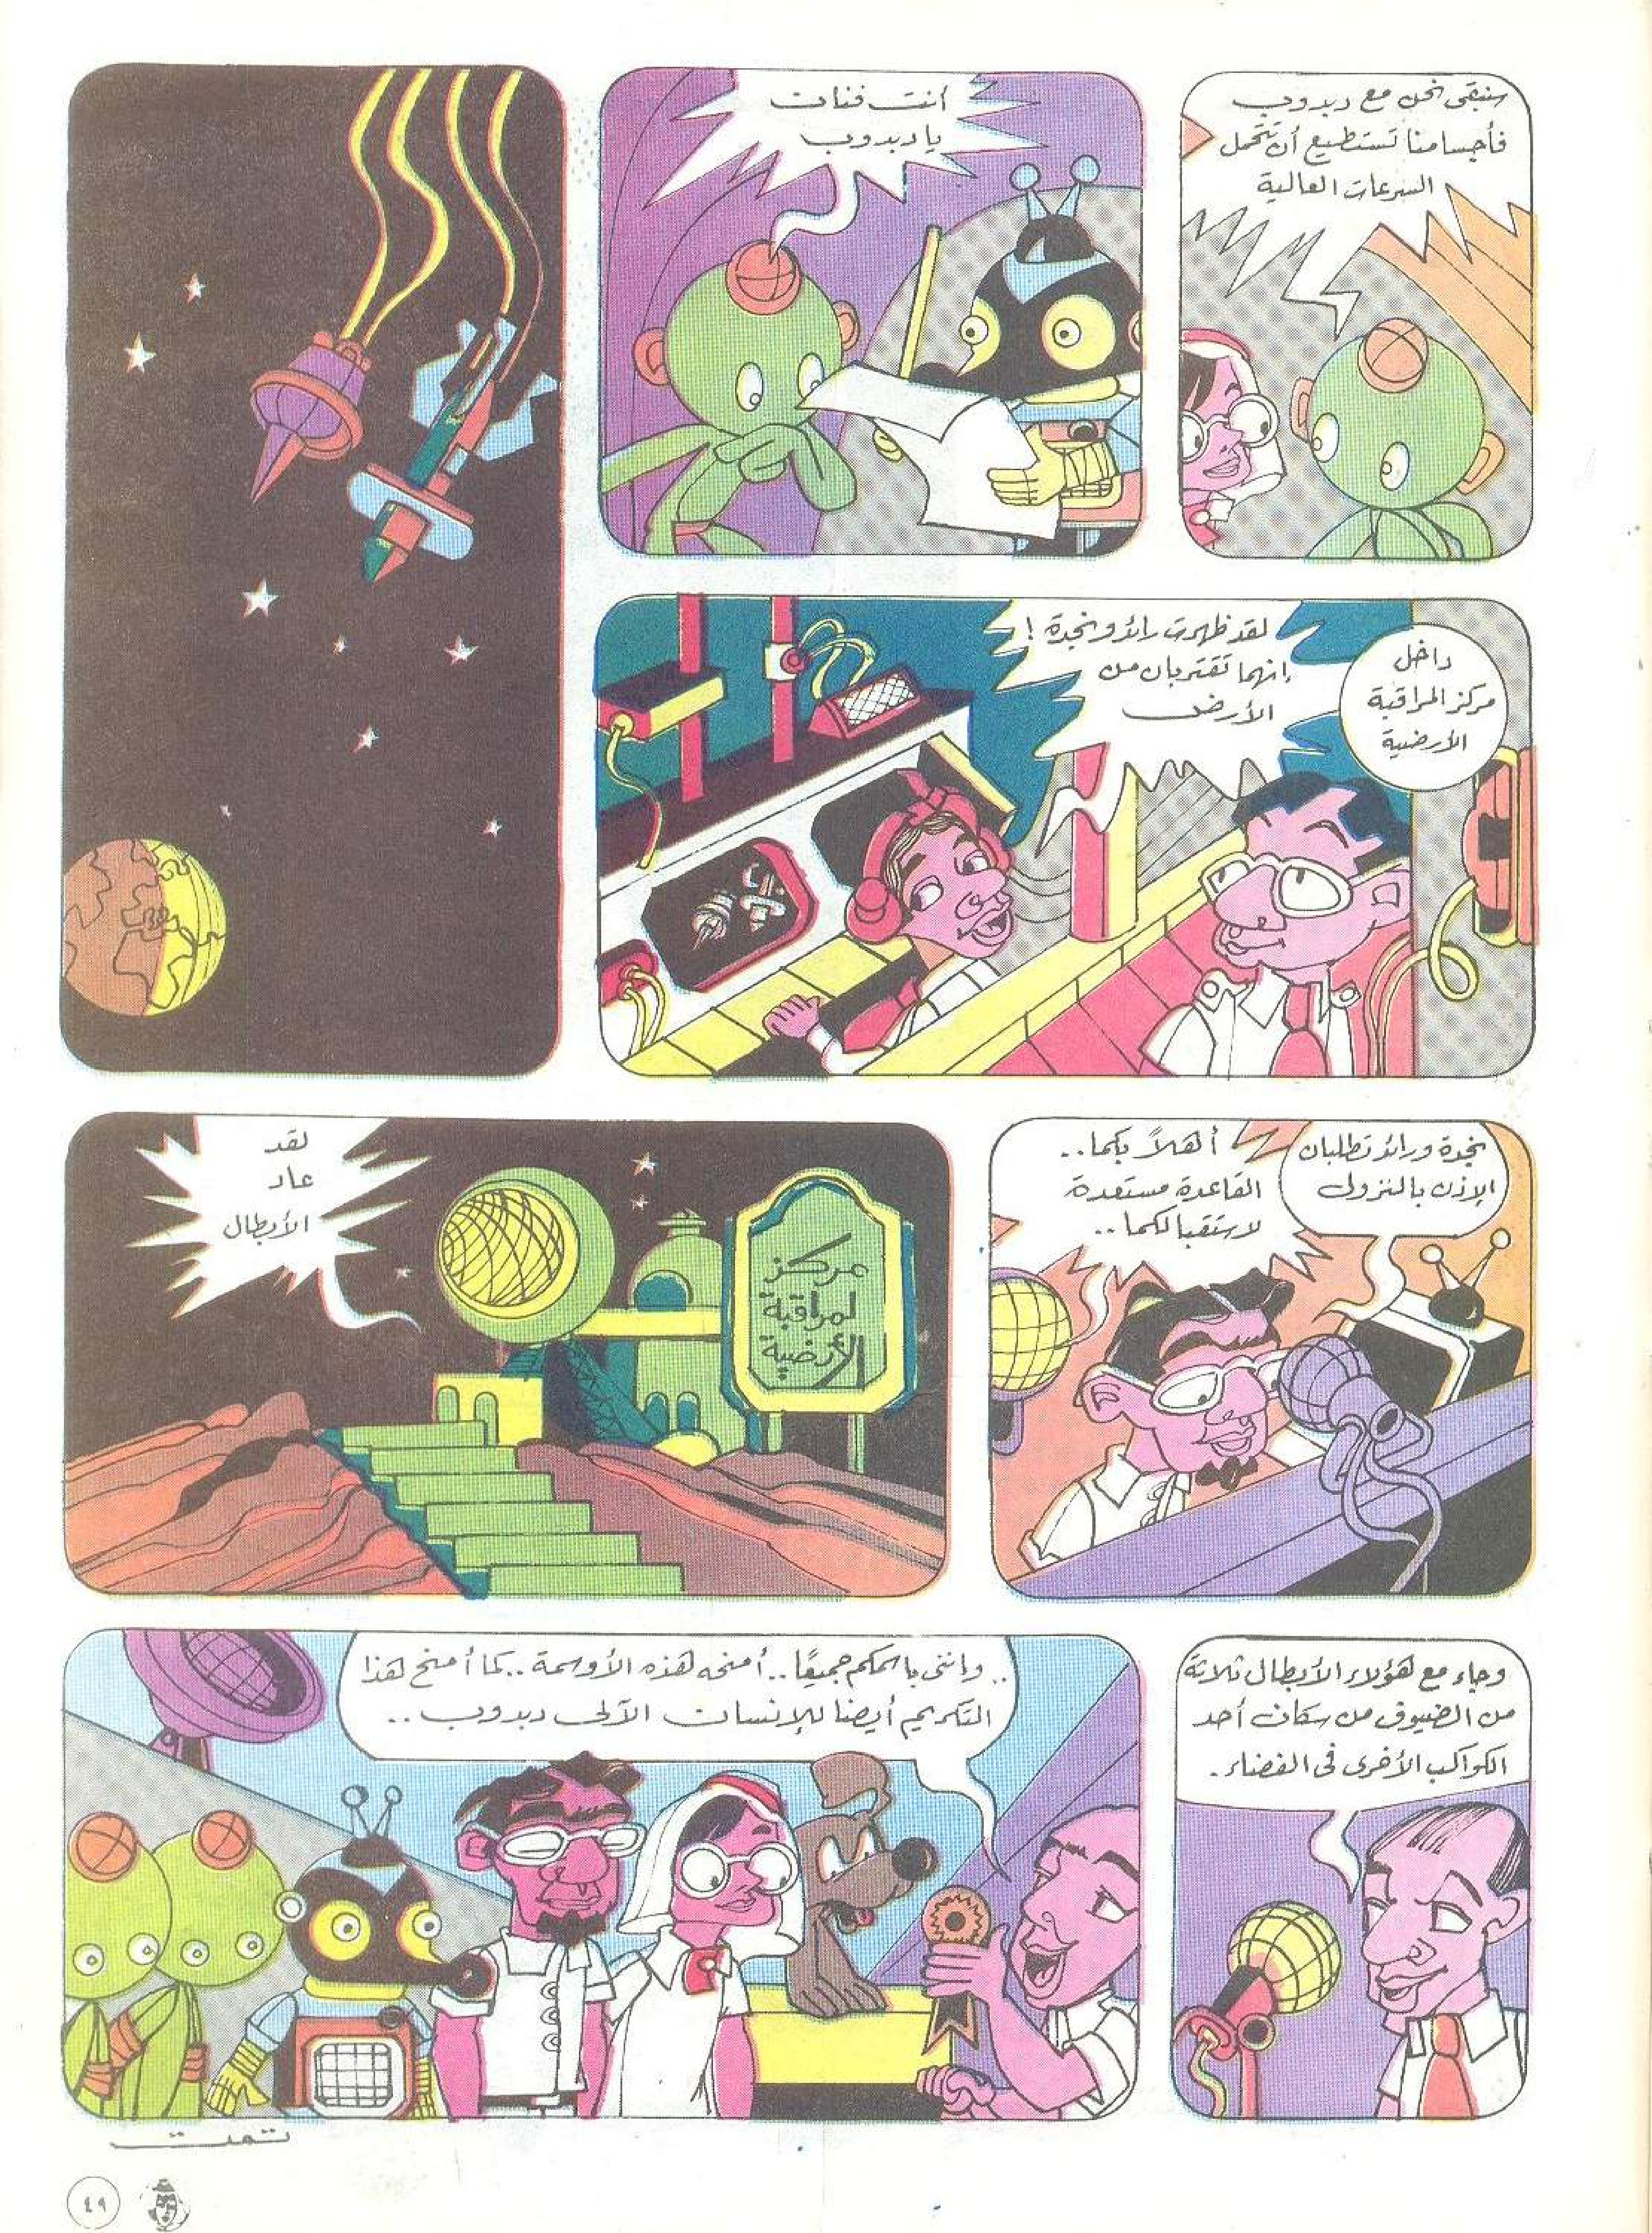 سنبقى نحن مع دبدوب
فأجسامنا تستطيع أن تتحمل
السرعات العالية
أنت فنان
يا دبدوب
داخل
مركز المراقبة
الأرضية
لقد ظهرت رائد ونجدة !
إنهما تقتربان من
الأرض
نجدة ورائد تطلبان
الإذن بالنزول
أهلاً بكما..
القاعدة مستعدة
لاستقبالكما ..
لقد
عاد
الأبطال
مركز
لمراقبة
الأرضية
وجاء مع هؤلاء الأبطال ثلاثة
من الضيوف من سكان أحد
الكواكب الأخرى فى الفضاء .
.. وإننى باسمكم جميعًا .. أمنحه هذه الأوسمة .. كما أمنح هذا
التكريم أيضا للإنسان الآلى دبدوب ..
تمت
٤٩